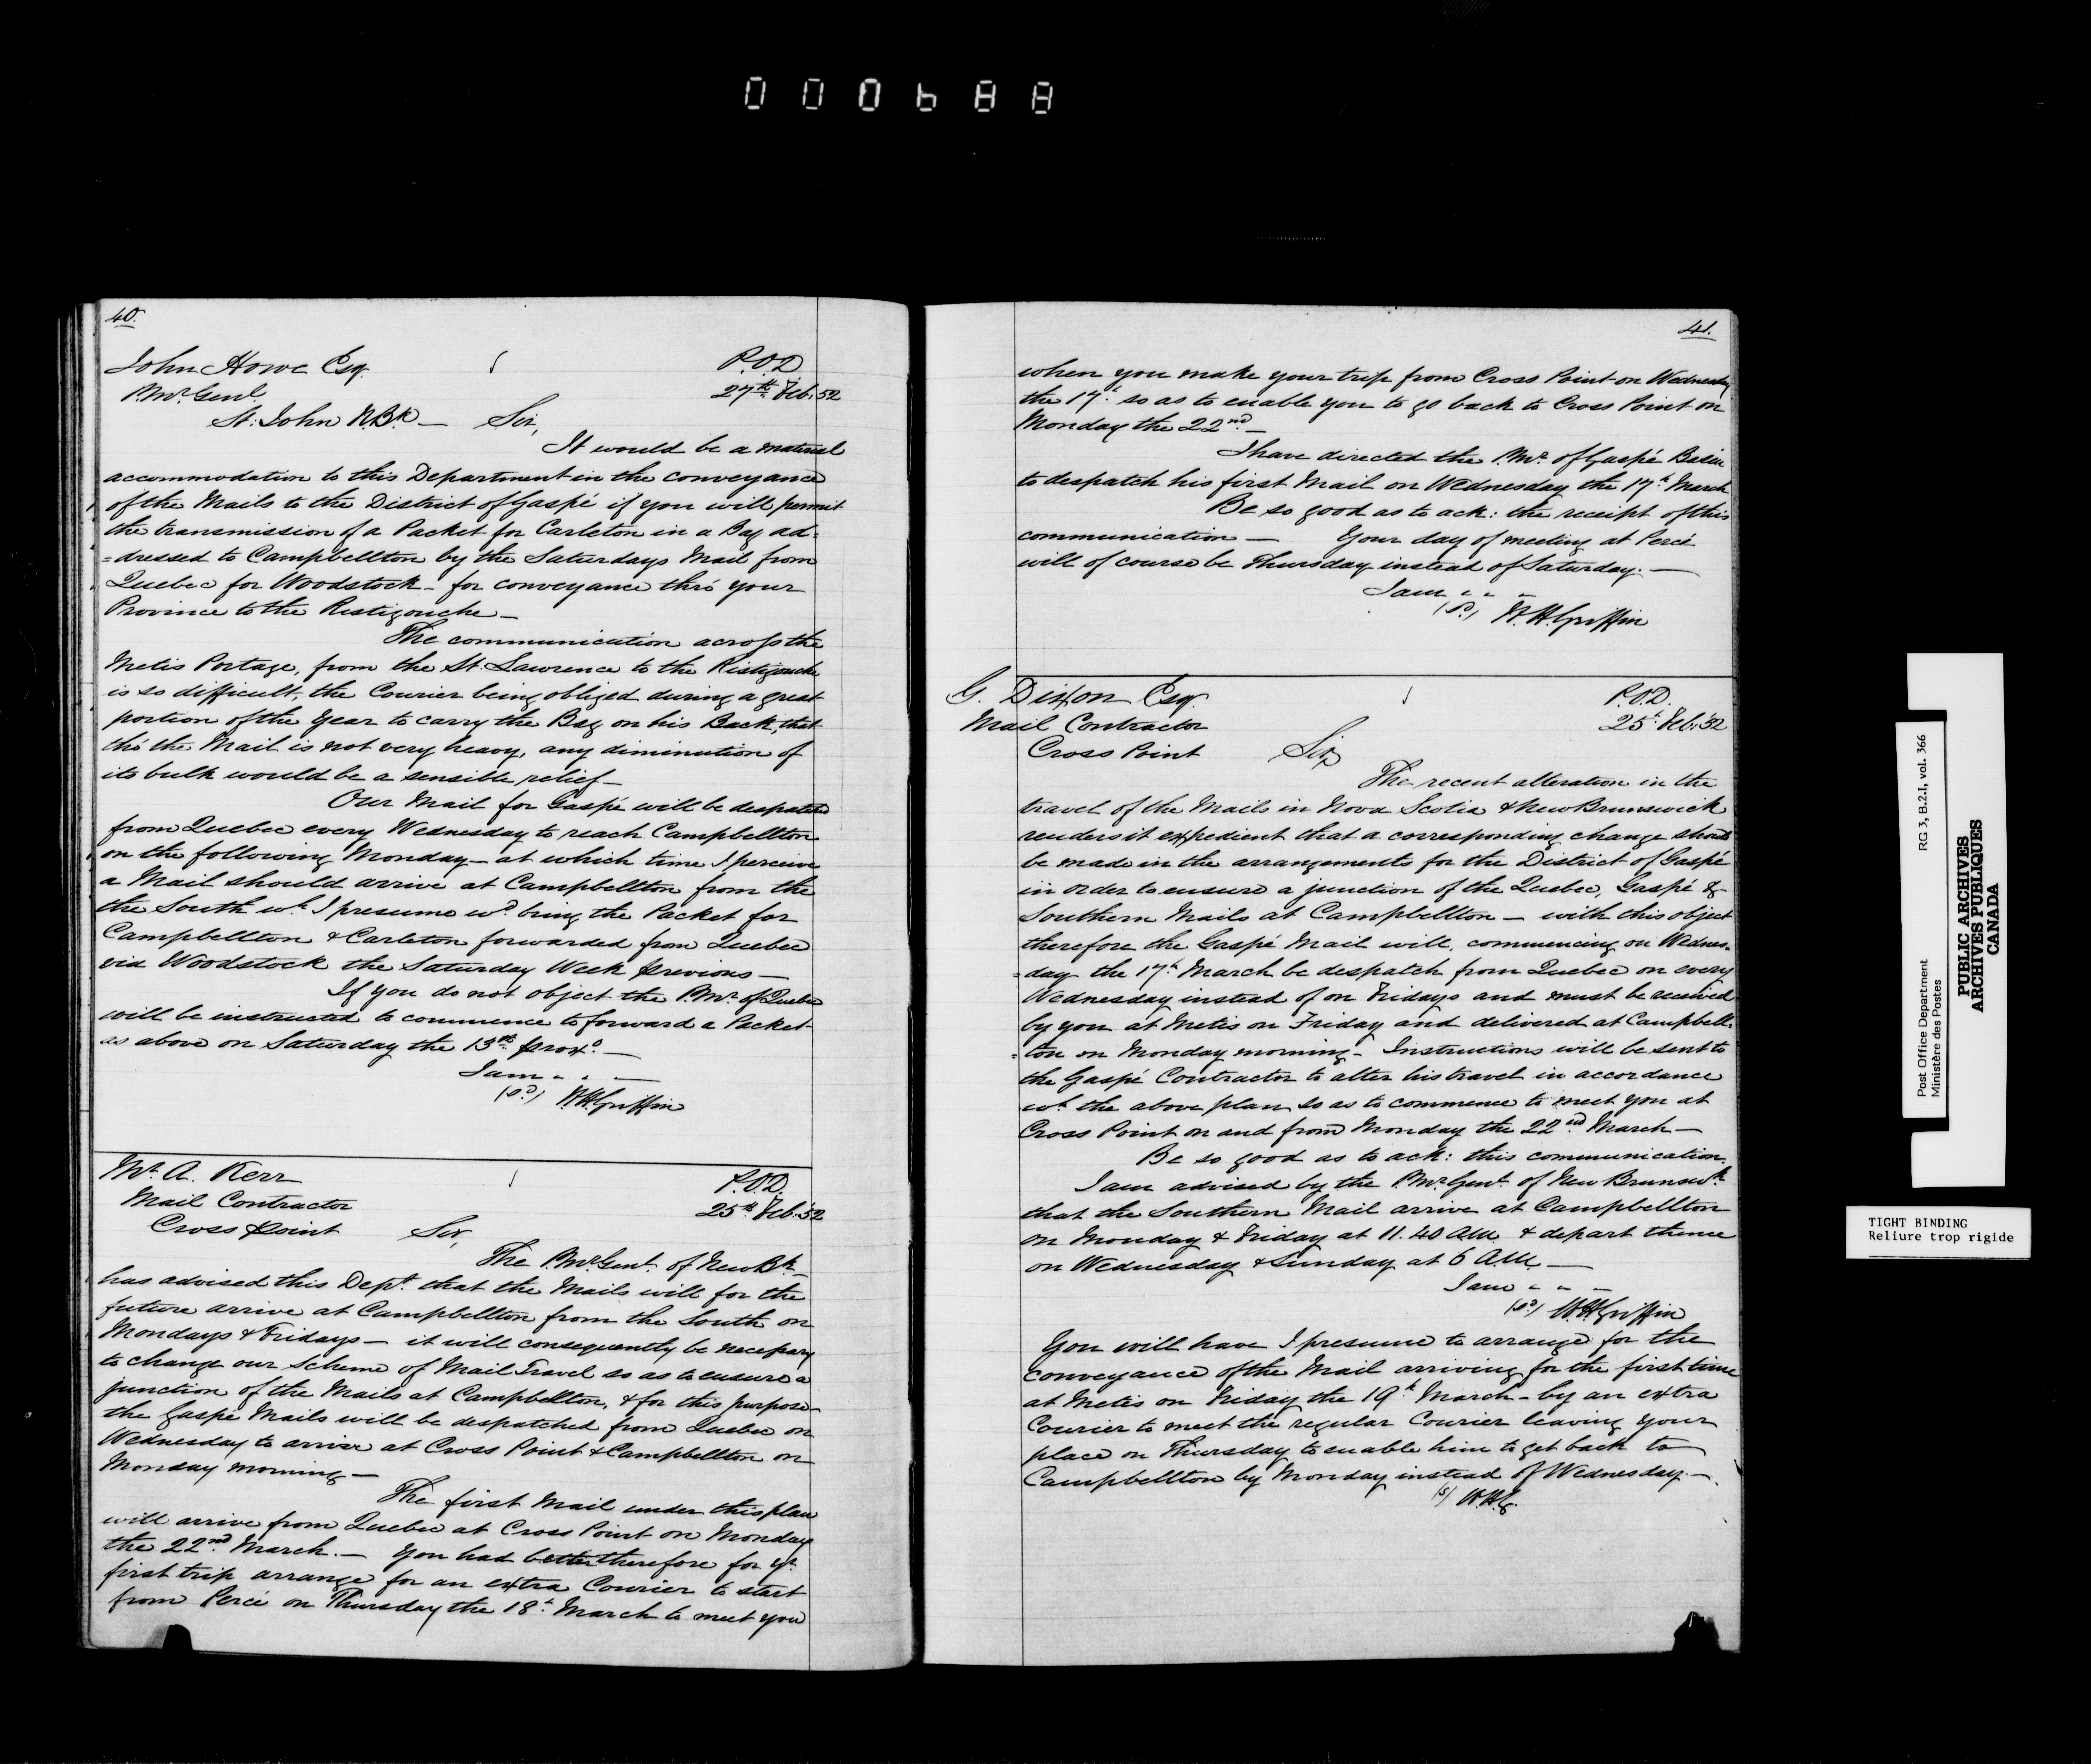 000688
40.
John Howe Esq. P.O.D
P.Mr. Genl. 27th Feb. 52
St. John N.Bk — Sir,
It would be a material
accommodation to this Department in the conveyance
of the Mails to the District of Gaspé if you will permit
the transmission of a Packet for Carleton in a Bag ad=
=dressed to Campbellton by the Saturdays Mail from
Quebec for Woodstock — for conveyance thro' your
Province to the Restigouche —
The communication across the
Metis Portage, from the St. Lawrence to the Ristigouche
is so difficult, the Courier being obliged during a great
portion of the Year to carry the Bag on his Back, that
tho' the Mail is not very heavy, any diminution of
its bulk would be a sensible relief —
Our Mail for Gaspé will be despatched
from Quebec every Wednesday to reach Campbellton
on the following Monday — at which time I perceive
a Mail should arrive at Campbellton from the
the South wh. I presume wd. bring the Packet for
Campbellton & Carleton forwarded from Quebec
via Woodstock the Saturday Week previous —
If you do not object the P.Mr. of Quebec
will be instructed to commence to forward a Packet
as above on Saturday the 13th proxo. —
I am " " —
(sd) W.H. Griffin
Mr. A. Kerr P.O.D.
Mail Contractor 25th Feb. 52
Cross Point Sir,
The P.Mr. Genl. of New Bk —
has advised this Dept. that the Mails will for the
future arrive at Campbellton from the South on
Mondays & Fridays — it will consequently be necessary
to change our Scheme of Mail Travel so as to ensure a
junction of the Mails at Campbellton, & for this purpose
the Gaspé Mails will be despatched from Quebec on
Wednesday to arrive at Cross Point & Campbellton on
Monday morning —
The first Mail under this plan
will arrive from Quebec at Cross Point on Monday
the 22nd March. — You had better therefore for yr.
first trip arrange for an extra Courier to start
from Percé on Thursday the 18th March to meet you
41.
when you make your trip from Cross Point on Wednesday
the 17th so as to enable you to go back to Cross Point on
Monday the 22nd. —
I have directed the P.Mr. of Gaspé Basin
to despatch his first Mail on Wednesday the 17th March
Be so good as to ack: the receipt of this
communication — Your day of meeting at Percé
will of course be Thursday instead of Saturday. —
I am " " —
(sd) W.H. Griffin
G. Dixon Esq. P.O.D.
Mail Contractor 25th Feb. 52
Cross Point Sir,
The recent alteration in the
travel of the Mails in Nova Scotia & New Brunswick
renders it expedient that a corresponding change should
be made in the arrangements for the District of Gaspé
in order to ensure a junction of the Quebec, Gaspé &
Southern Mails at Campbellton — with this object
therefore the Gaspé Mail will, commencing on Wednes=
=day the 17th March be despatch from Quebec on every
Wednesday instead of on Fridays and must be received
by you at Metis on Friday and delivered at Campbell=
=ton on Monday morning — Instructions will be sent to
the Gaspé Contractor to alter his travel in accordance
wh. the above plan so as to commence to meet you at
Cross Point on and from Monday the 22nd March —
Be so good as to ack: this communication.
I am advised by the P.Mr. Genl. of New Brunswk
that the Southern Mail arrive at Campbellton
on Monday & Friday at 11.40 A.M. & depart thence
on Wednesday & Sunday at 6 A.M. —
I am " " —
(sd) W.H. Griffin
You will have I presume to arrange for the
conveyance of the Mail arriving for the first time
at Metis on Friday the 19th March — by an extra
Courier to meet the regular Courier leaving your
place on Thursday to enable him to get back to
Campbellton by Monday instead of Wednesday. —
(s) W.H.G.
Post Office Department RG 3, B.2.1, vol. 366
Ministère des Postes
PUBLIC ARCHIVES
ARCHIVES PUBLIQUES
CANADA
TIGHT BINDING
Reliure trop rigide